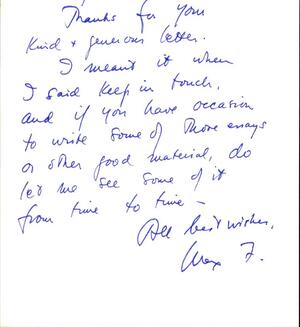 Thanks for your
kind + generous letter.
I meant it when
I said keep in touch,
and if you have occasion
to write some of those essays
or other good material, do
let me see some of it
from time to time –
All best wishes,
Max F.